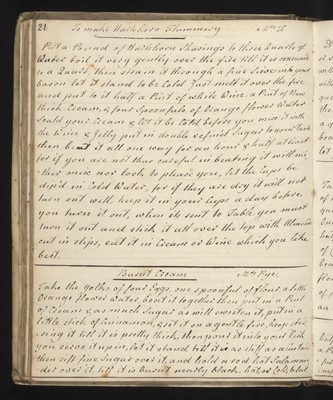 21 To make Hartshorn Flummery
Put a Pound of Hartshorn Shavings to three Quarts of
Water boil it very gently over the fire till it is consumed
to a Quart, then strain it through a fine Sieve into your
bason let it stand to be Cold Just melt it over the fire
and put to it half a Pint of white Wine a Pint of New
thick Cream, & four Spoonfuls of Orange flower Water
Scald your Cream & let it be Cold before you mix it with
the Wine & Jelly put in double refined Sugar to your taste
then beat it all one way for an hour & half at least
for if you are not thus careful in beating it will nei-
ther mix nor look to please you, let the Cups be
dip'd in Cold Water, for if they are dry it will not
turn out well keep it in your Cups a day before
you turn it out, when its sent to Table you must
turn it out and stick it all over the top with Almonds
cut in slips, eat it in Cream or Wine which you like
best.
Burnt Cream Mrs Pye;
Take the yolks of four Eggs one spoonful of flour a little
Orange flower Water, beat it together then put in a Pint
of Cream & as much Sugar as will sweeten it, put in a
little stick of Cinnamon, & set it on a gentle fire, keep stir-
ring it till it is pretty thick, then pour it into your Dish
you serve it up in, let it stand till it is as stiff as a Custard
then sift fine Sugar over it, and hold a red hot Salaman-
der over it till it is burnt nearly black, hot or Cold, is best